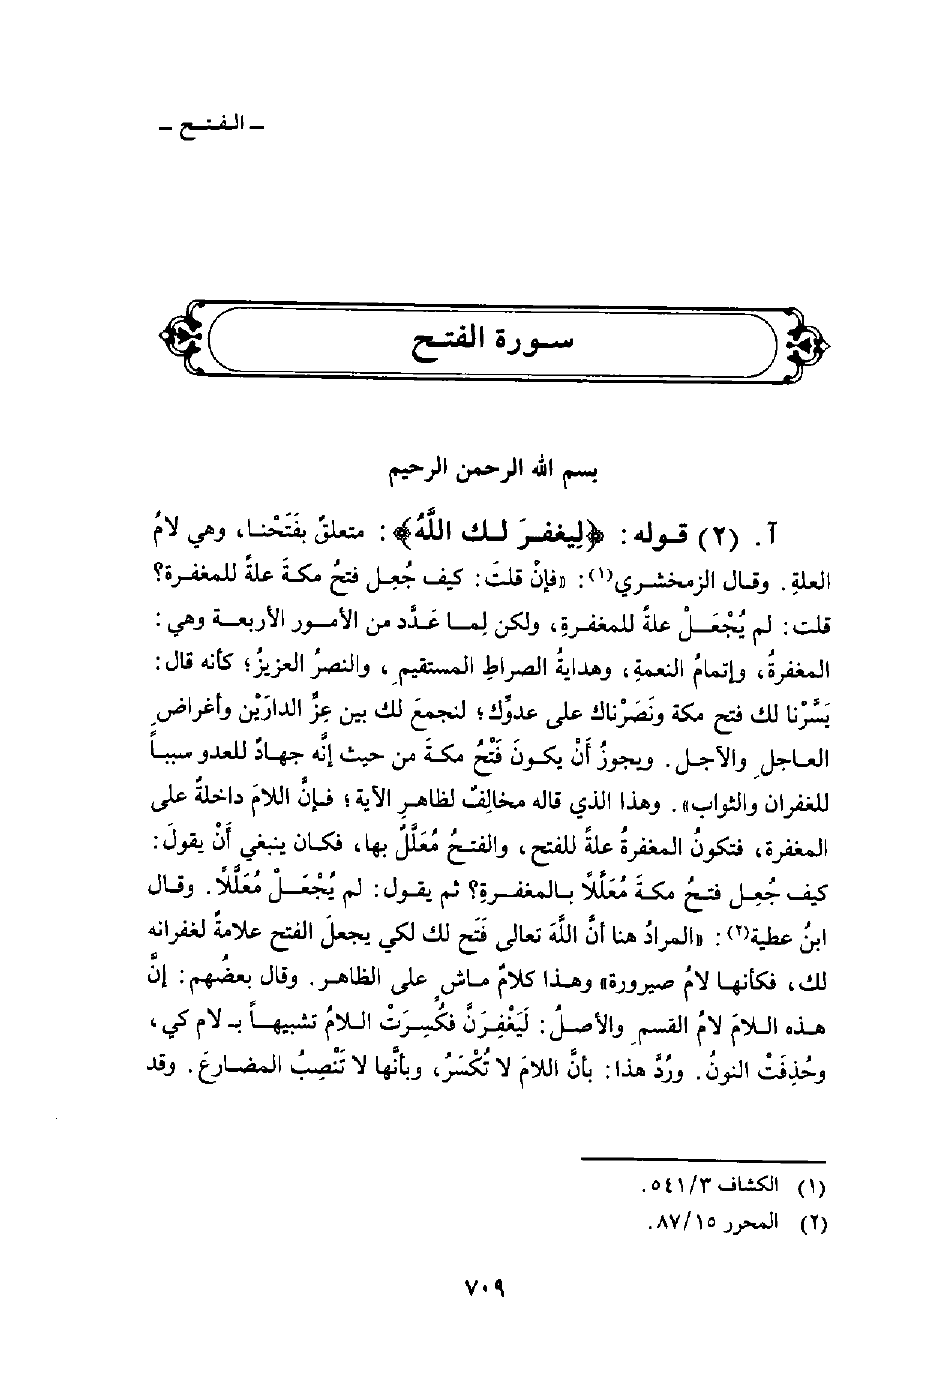 ـ الفتح ـ
سورة الفتح
بسم الله الرحمن الرحيم
آ. (٢) قوله: ﴿لِيغفرَ لك اللَّهُ﴾: متعلقٌ بفَتَحْنا، وهي لامُ
العلةِ. وقال الزمخشري(١): «فإنْ قلتَ: كيف جُعِل فتحُ مكةَ علةً للمغفرة؟
قلت: لم يُجْعَلْ علةً للمغفرةِ، ولكن لِما عَدَّد من الأمور الأربعة وهي:
المغفرةُ، وإتمامُ النعمةِ، وهدايةُ الصراطِ المستقيمِ، والنصرُ العزيزُ؛ كأنه قال:
يَسَّرْنا لك فتح مكة ونَصَرْناك على عدوِّك؛ لنجمعَ لك بين عِزِّ الدارَيْن وأغراضِ
العاجلِ والآجلِ. ويجوزُ أَنْ يكونَ فَتْحُ مكةَ من حيث إنَّه جهادٌ للعدو سبباً
للغفران والثواب». وهذا الذي قاله مخالِفٌ لظاهرِ الآية؛ فإنَّ اللامَ داخلةٌ على
المغفرة، فتكونُ المغفرةُ علةً للفتح، والفتحُ مُعَلَّلٌ بها، فكان ينبغي أَنْ يقولَ:
كيف جُعِل فتحُ مكةَ مُعَلَّلاً بالمغفرةِ؟ ثم يقول: لم يُجْعَلْ مُعَلَّلاً. وقال
ابنُ عطية(٢): «المرادُ هنا أنَّ اللَّهَ تعالى فَتَح لك لكي يجعلَ الفتح علامةً لغفرانه
لك، فكأنها لامُ صيرورة» وهذا كلامٌ ماشٍ على الظاهر. وقال بعضُهم: إنَّ
هذه اللامَ لامُ القسمِ والأصلُ: لَيَغْفِرَنَّ فكُسِرَتْ اللامُ تشبيهاً بـ لام كي،
وحُذِفَتْ النونُ. ورُدَّ هذا: بأنَّ اللامَ لا تُكْسَرُ، وبأنَّها لا تَنْصِبُ المضارعَ. وقد
(١) الكشاف ٥٤١/٣.
(٢) المحرر ٨٧/١٥.
٧٠٩